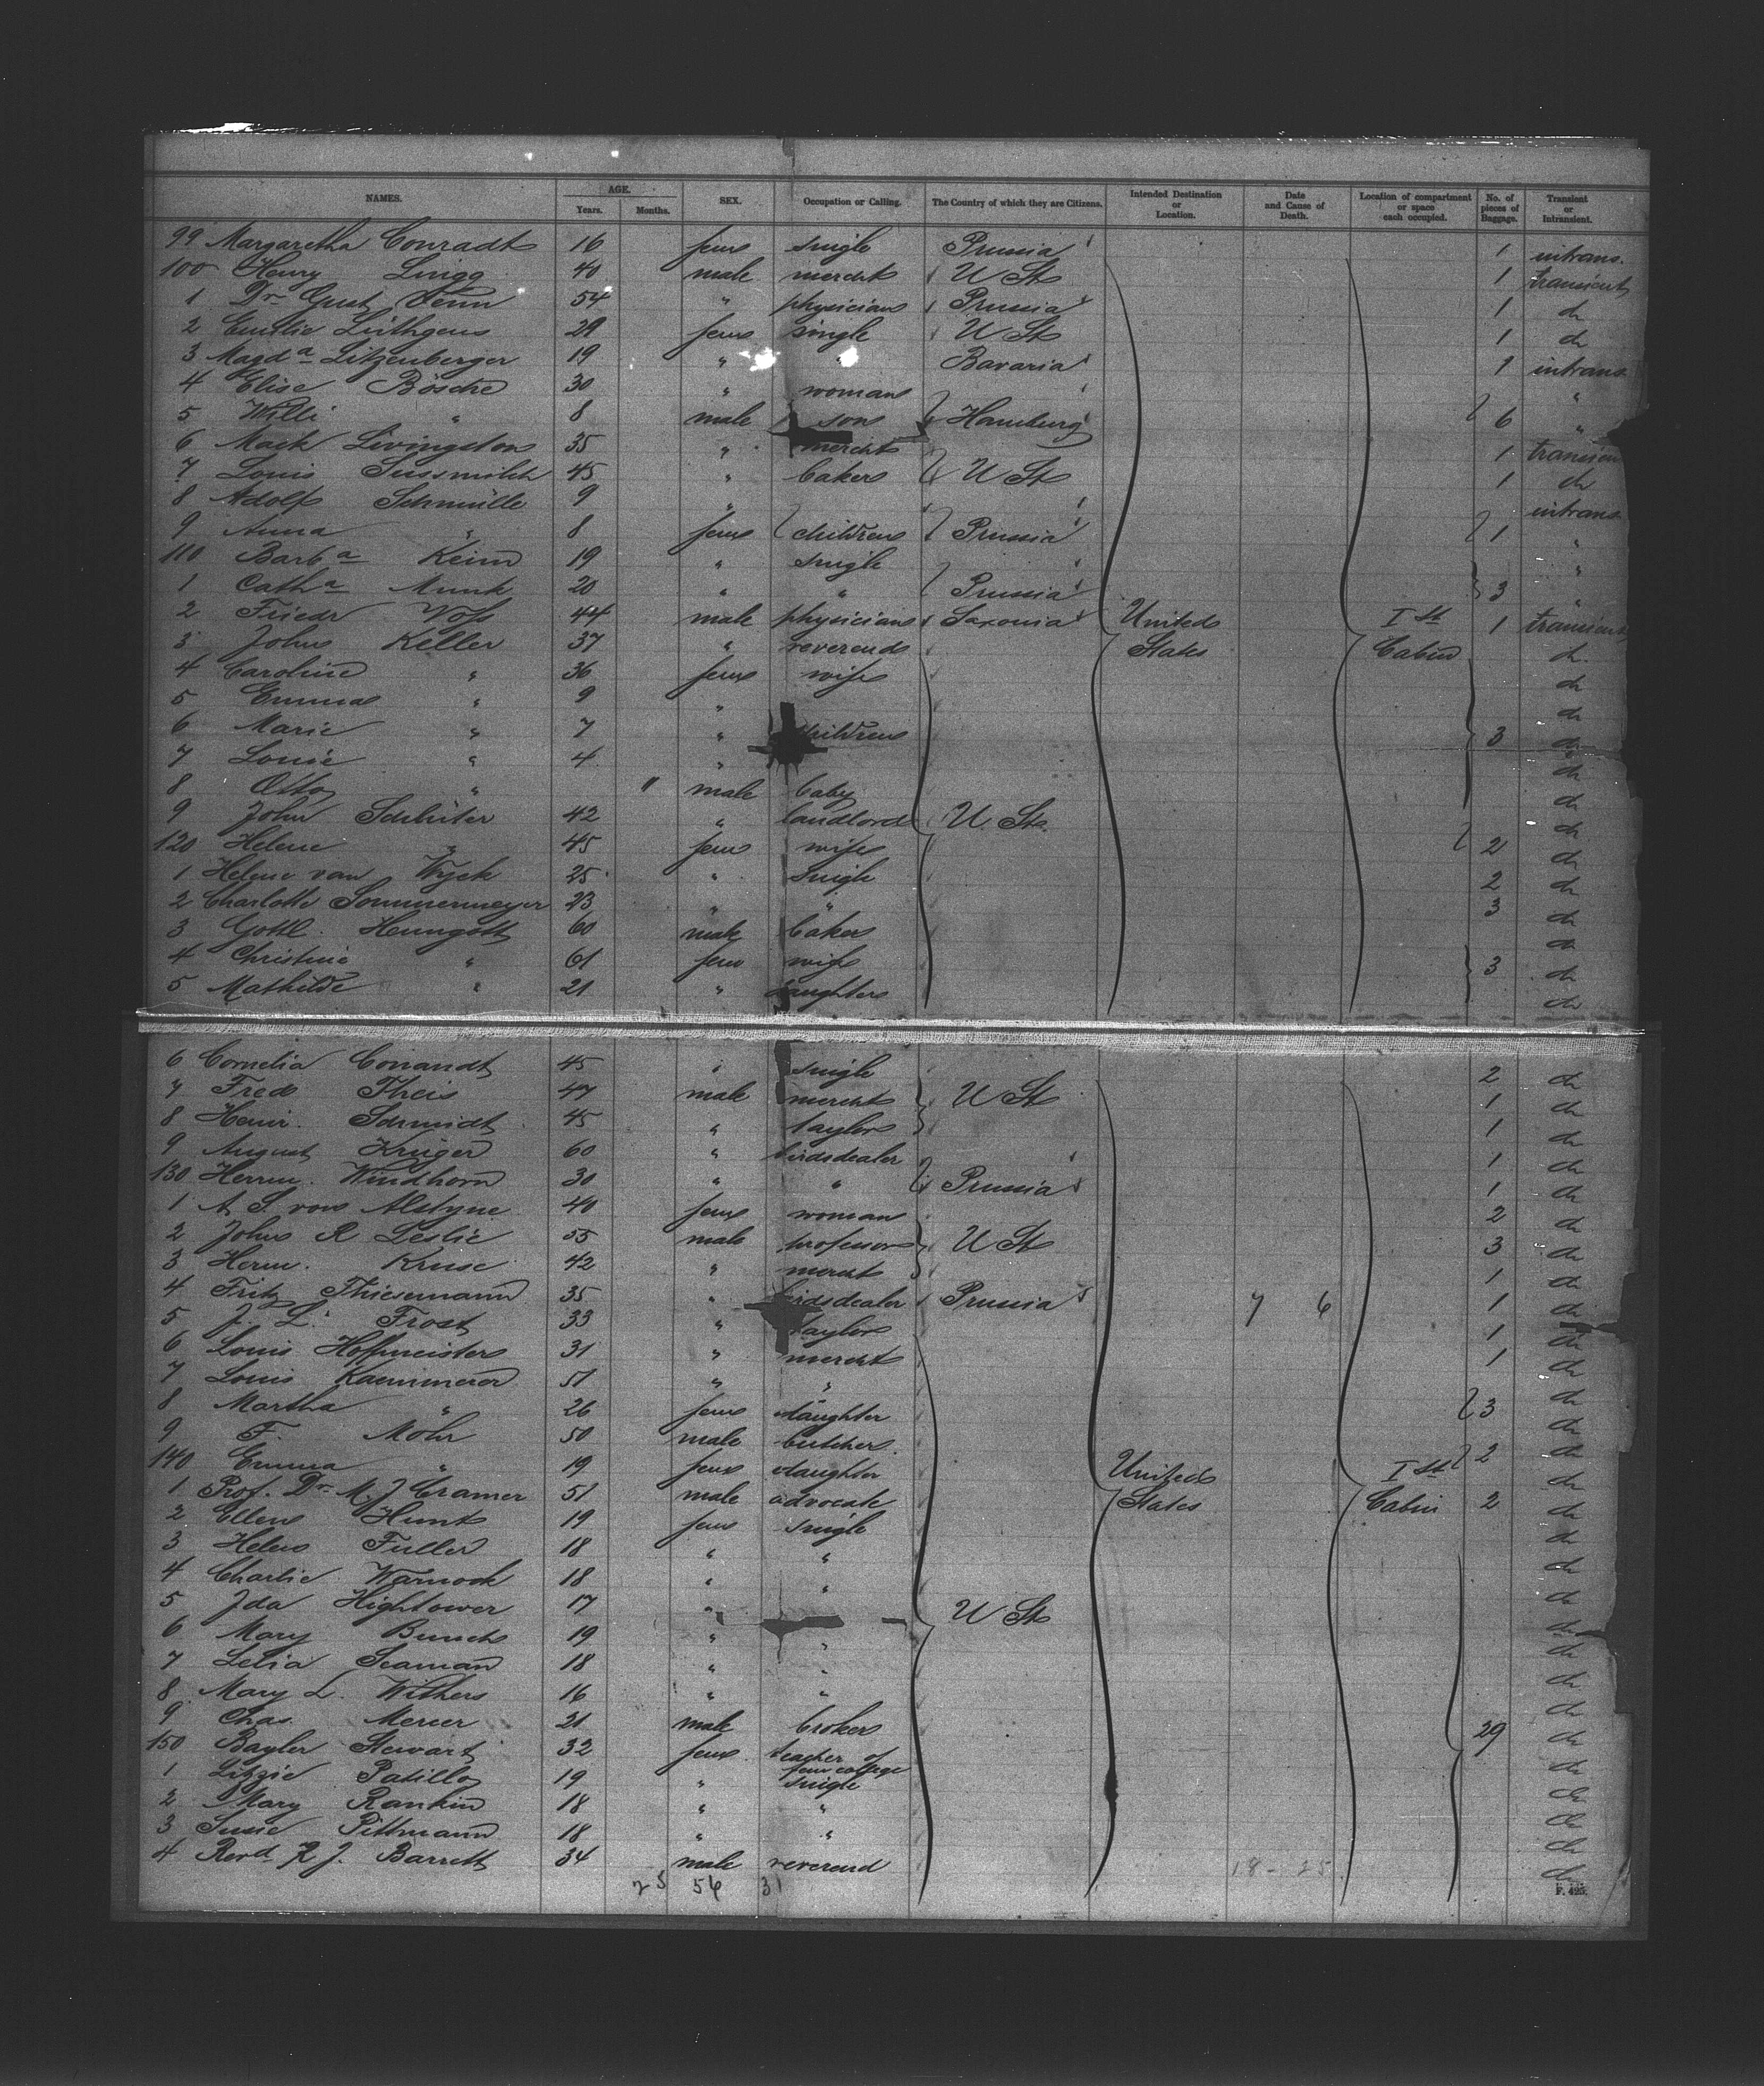 NAMES. AGE. Years. Months. SEX. Occupation or Calling. The Country of which they are Citizens. Intended Destination or Location. Date and Cause of Death. Location of compartment or space each occupied. No. of pieces of Baggage. Transient or Intransient.
99 Margaretha Conradt 16 fem single Prussia 1 intrans.
100 Henry 40 male mercht U St 1 transient
1 Dr Gust 54 " physician Prussia 1 do
2 Emilie Lüthgens 29 fem single U St 1 do
3 Magda Litzenberger 19 " " Bavaria 1 intrans
4 Elise Bösche 30 " woman "
5 Willi " 8 male son Hamburg 6 "
6 Mack Livingston 35 " mercht 1 transient
7 Louis Sussmilch 45 " baker U St 1 do
8 Adolf Schmülle 9 " intrans
9 Anna " 8 fem children Prussia 1 "
110 Barba Keim 19 " single "
1 Catha Munk 20 " " Prussia 3 "
2 Friedr Voss 44 male physician Saxonia United Ist 1 transient
3 John Keller 37 " reverend States Cabin do
4 Caroline " 36 fem wife do
5 Emma " 9 " do
6 Marie " 7 " children 3 do
7 Louie " 4 " do
8 Otto " 11 male baby do
9 John Schlüter 42 " landlord U. St. do
120 Helene " 45 fem wife 2 do
1 Helene van Wyck 25 " single 2 do
2 Charlotte Sommermeyer 23 " " 3 do
3 Gottl. Heimgott 60 male baker do
4 Christine " 61 fem wife 3 do
5 Mathilde " 21 " daughter do
6 Cornelia Conandt 45 " single 2 do
7 Fred Theis 47 male mercht U St 1 do
8 Heinr. Schmidt 45 " taylor 1 do
9 August Krüger 60 " birdsdealer 1 do
130 Herm. Windhorn 30 " " Prussia 1 do
1 A. S. von Alstyne 40 fem woman 2 do
2 John R Leslie 55 male professor U St 3 do
3 Herm. Kruse 42 " mercht 1 do
4 Fritz Thiesemann 35 " birdsdealer Prussia 7 6 1 do
5 J. L. Frost 33 " taylor 1 do
6 Louis Hoffmeister 31 " mercht 1 do
7 Louis Kaemmerer 51 " " do
8 Martha " 26 fem daughter 3 do
9 F. Mohr 50 male butcher. do
140 Emma " 19 fem daughter United Ist 2 do
1 Prof. Dr M. J Cramer 51 male advocate States Cabin 2 do
2 Ellen Hunt 19 fem single do
3 Helen Fuller 18 " " do
4 Charlie Warnock 18 " " do
5 Ida Hightower 17 " U St do
6 Mary Bunch 19 " " do
7 Lelia Seaman 18 " " do
8 Mary L. Withers 16 " " do
9 Chas. Mercer 21 male broker 29 do
150 Bayler Stewart 32 fem. teacher of fem college do
1 Lizzie Patillo 19 " single do
2 Mary Rankin 18 " " do
3 Susie Pittmann 18 " " do
4 Revd. R J. Barrett 34 male reverend 18-25 do
25 56 31 F. 425.